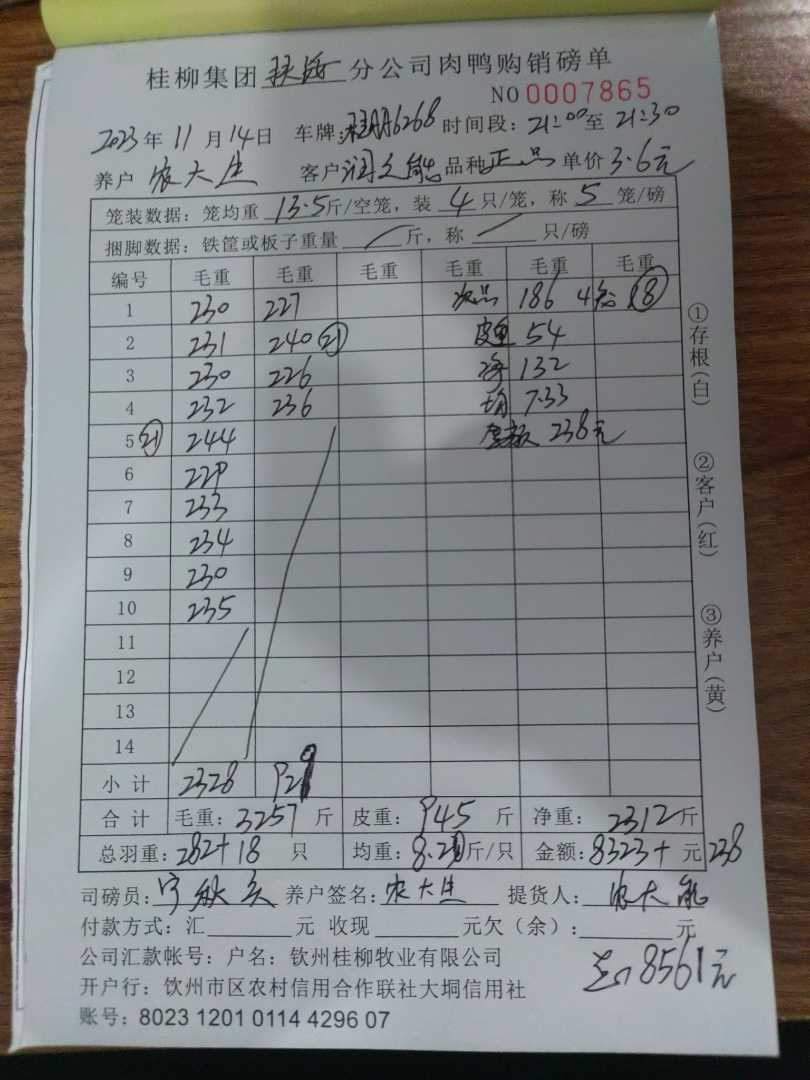 桂柳集团 分公司肉鸭购销磅单
NO 0007865
2023年11月14日 车牌: 6268 时间段: 21:00至21:30
养户 农大生 客户 品种正品 单价3.6元
笼装数据: 笼均重 13.5斤/空笼, 装 4 只/笼, 称 5 笼/磅
捆脚数据: 铁筐或板子重量 / 斤, 称 / 只/磅
编号 毛重 毛重 毛重 毛重 毛重 毛重
1 230 227 次品 186 4笼 18
2 231 240 21 皮重 54
3 230 226 净 132
4 232 236 均 7.33
5 21 244 238元
6 229
7 233
8 234
9 230
10 235
11
12
13
14
小计 2328 929
合计 毛重: 3257 斤 皮重: 945 斤 净重: 2312斤
总羽重: 282+18 只 均重: 8.20斤/只 金额: 8323+ 元 238
司磅员: 养户签名: 农大生 提货人:
付款方式: 汇 元 收现 元欠(余): 元
公司汇款帐号: 户名: 钦州桂柳牧业有限公司
8561元
开户行: 钦州市区农村信用合作联社大垌信用社
账号: 8023 1201 0114 4296 07
①存根(白)
②客户(红)
③养户(黄)